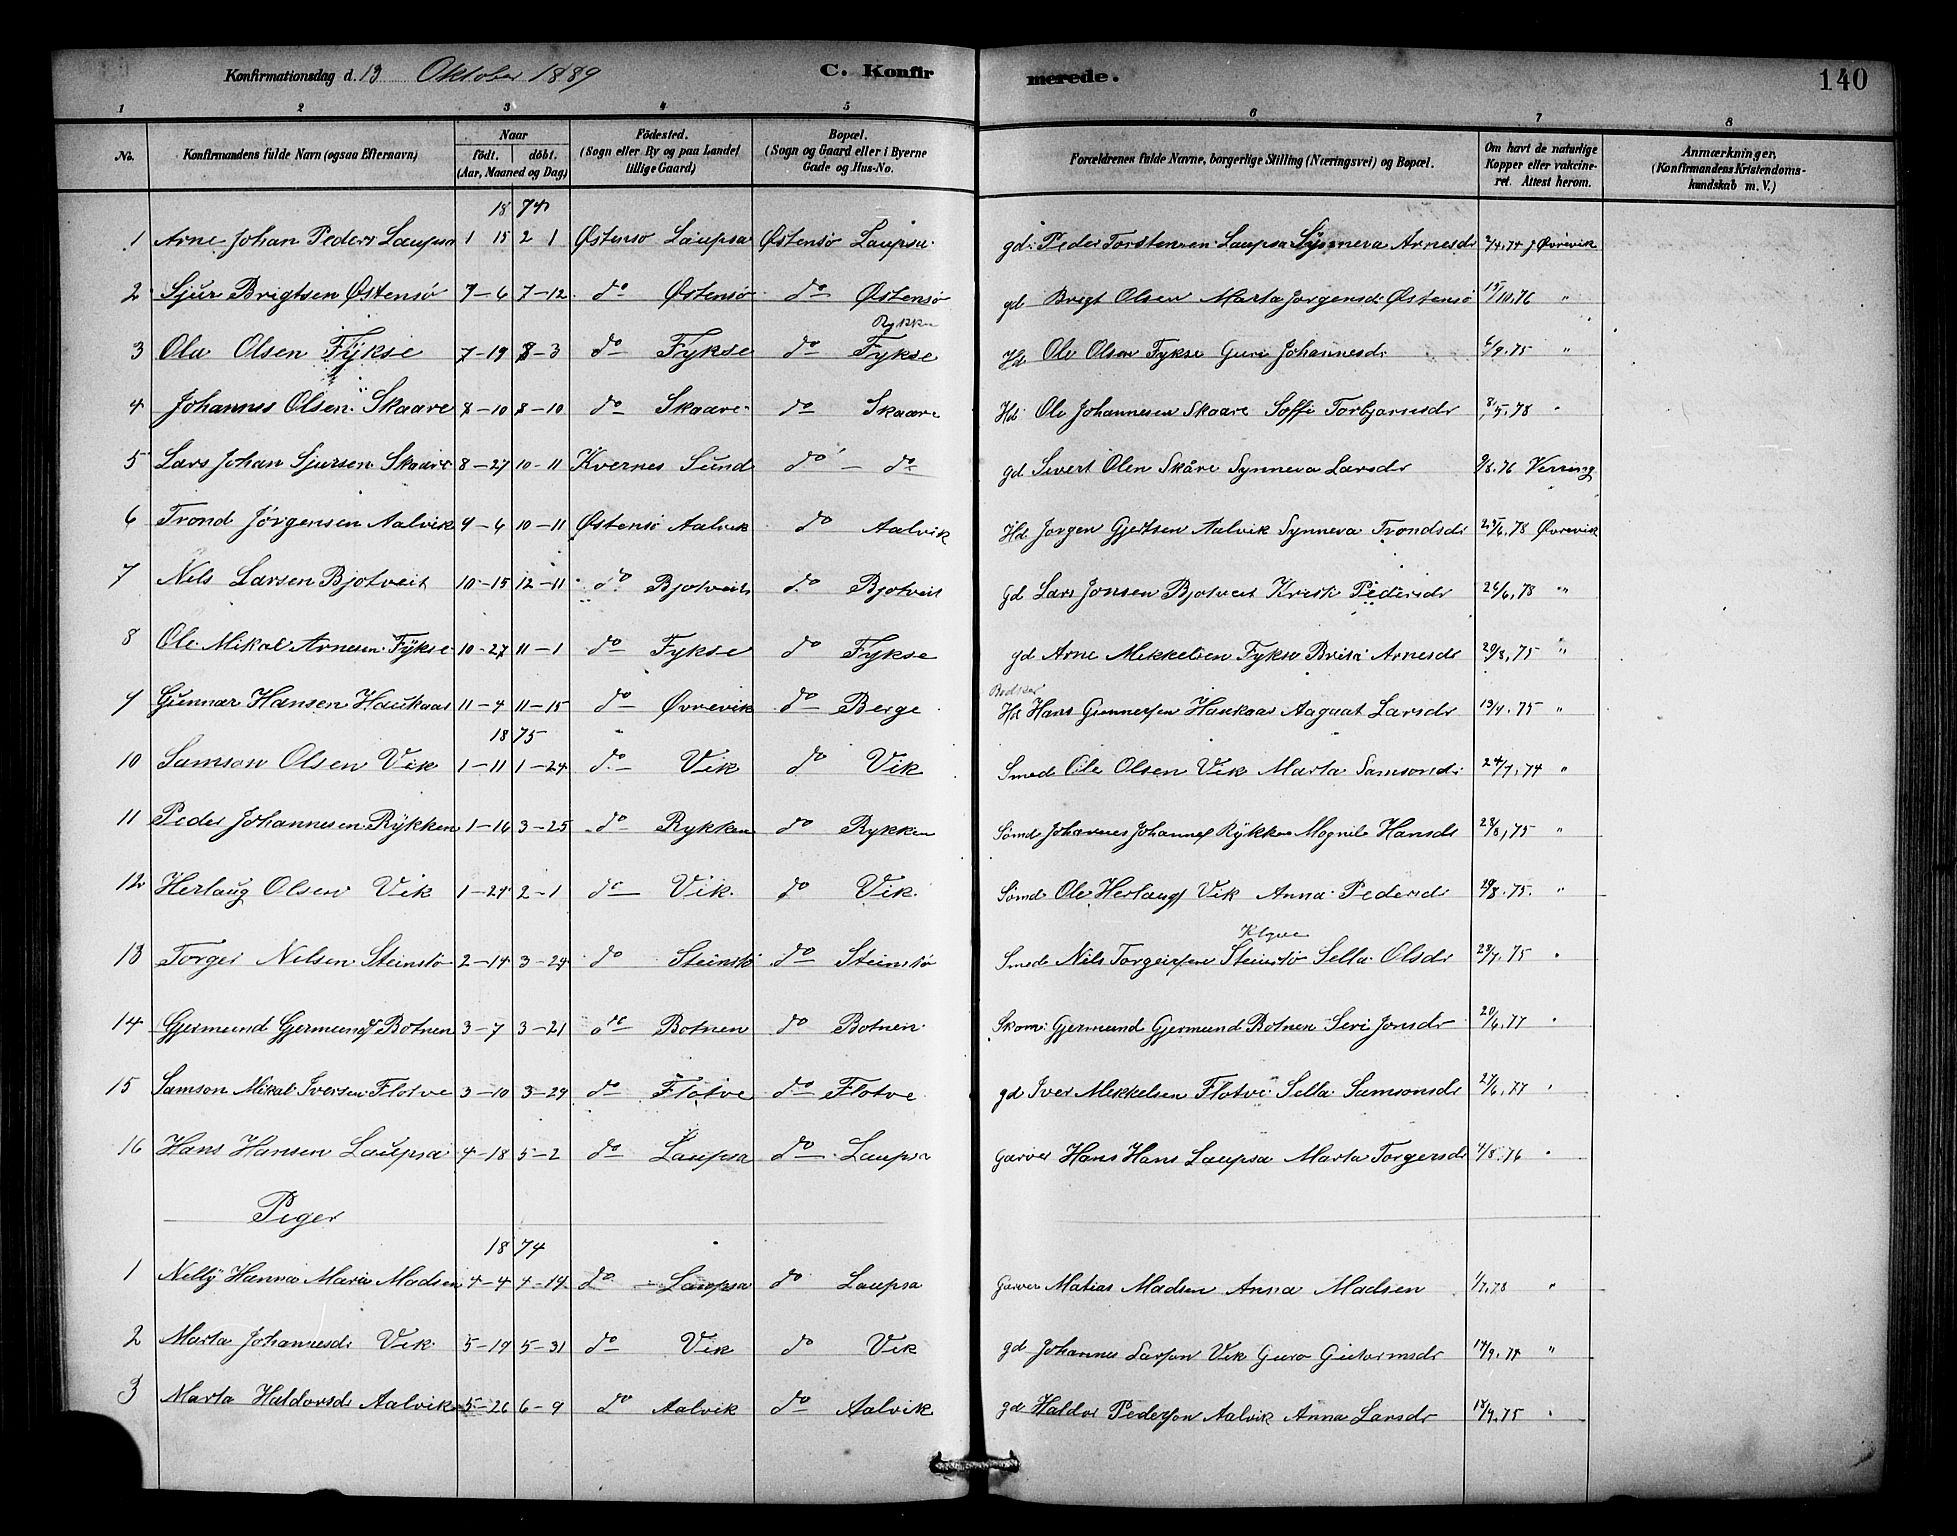 Konfirmationsdag d. 13 Oktober 1889 C. Konfirmerede. 140
1 2 3 4 5 6 7 8
No. Konfirmandens fulde Navn (ogsaa Efternavn) Naar födt. döbt. (Aar, Maaned og Dag) Födested. (Sogn eller By og paa Landet tillige Gaard) Bopæl. (Sogn og Gaard eller i Byerne Gade og Hus-No. Forældrenes fulde Navne, borgerlige Stilling (Næringsvei) og Bopæl. Om havt de naturlige Kopper eller vakcineret. Attest herom. Anmærkninger, (Konfirmandens Kristendomskundskab m. V.)
18 74
1 Arne Johan Peders Laupsa 1 15 2 1 Østensö Laupsa Østensö Laupsa gd. Peder Torstensen Laupsa Synneva Arnesdr 2/4.74 J Øvrevik
2 Sjur Brigtsen Østensö 7-6 7-12 do Østensö do Østensö gd Brigt Olsen Marta Jorgensdr Østensö 15/10.76 "
Rykken
3 Ola Olsen Fÿkse 7-19 8-3 do Fykse do Fykse Hd Ole Olsen Fykse Guri Johannesdr 6/9.75 "
4 Johannes Olsen Skaare 8-10 8-10 do Skaare do Skaare Hd Ole Johannesen Skaare Soffi Torbjørnsdr 8/5.78 "
5 Lars Johan Sjursen Skaare 8-27 10-11 Kvernes Sund do - do gd Sivert Olen Skåre Synneva Larsdr 9/8.76
6 Trond Jørgensen Aalvik 9-6 10-11 Østensö Aalvik do Aalvik Hd Jorgen Gjertsen Aalvik Synneva Trondsdr 25/6.78 Øvrevik
7 Nels Larsen Bjotveit 10-15 12-11 do Bjotveit do Bjotveit gd Lars Jonsen Bjotveit Kristi Pedersdr 26/6.78 "
8 Ole Mikal Arnesen Fÿkse 10-27 11-1 do Fykse do Fykse gd Arne Mikkelsen Fykse Brita Arnesdr 20/8.75 "
9 Gunnar Hansen Haukaas 11-4 11-15 do Øvrevik do Berge Hd Hans Gunnersen Haukaas Aagaat Larsdr 19/9.75 "
18 75
10 Samson Olsen Vik 1-11 1-24 do Vik do Vik Smed Ole Olsen Vik Marta Samsonsdr 24/7.74 "
11 Peder Johannesen Rÿkken 1-16 3-25 do Rykken do Rykken Sømd Johannes Johannes Rÿkken Mognile Hansdr 28/8.75 "
12 Herlaug Olsen Vik 1-24 2-1 do Vik do Vik Sømd Ole Herlaugs Vik Anna Pedersdr 28/8.75. "
13 Torger Nilsen Steinstø 2-14 3-24 do Steinstø do Steinstø Smed Nils Torgersen Steinstø Sella Olsdr 23/7.75 "
14 Gjermund Gjermunds Botnen 3-7 3-21 do Botnen do Botnen Skom. Gjermund Gjermund Botnen Seri Jonsdr 20/6.77 "
15 Samson Mikal Iversen Flotve 3-10 3-29 do Flotve do Flotve gd Iver Mikkelsen Flotve Sella Samsonsdr 27/6.77 "
16 Hans Hansen Laupsa 4-18 5-2 do Laupsa do Laupsa Garver Hans Hans Laupsa Marta Torgersdr 4/8.76 "
Piger
18 74
1 Nelly Hanna Maria Madsen 4-4 4-19 do Laupsa do Laupsa Garver Matias Madsen Anna Madsen 1/7.78 "
2 Marta Johannesdr Vik 5-19 5-31 do Vik do Vik gd Johannes Larsen Vik Guro Gutormsdr 17/9.74 "
3 Marta Haldorsdr Aalvik 5-26 6-9 do Aalvik do Aalvik gd Haldor Pedersen Aalvik Anna Larsdr 18/9.75 "